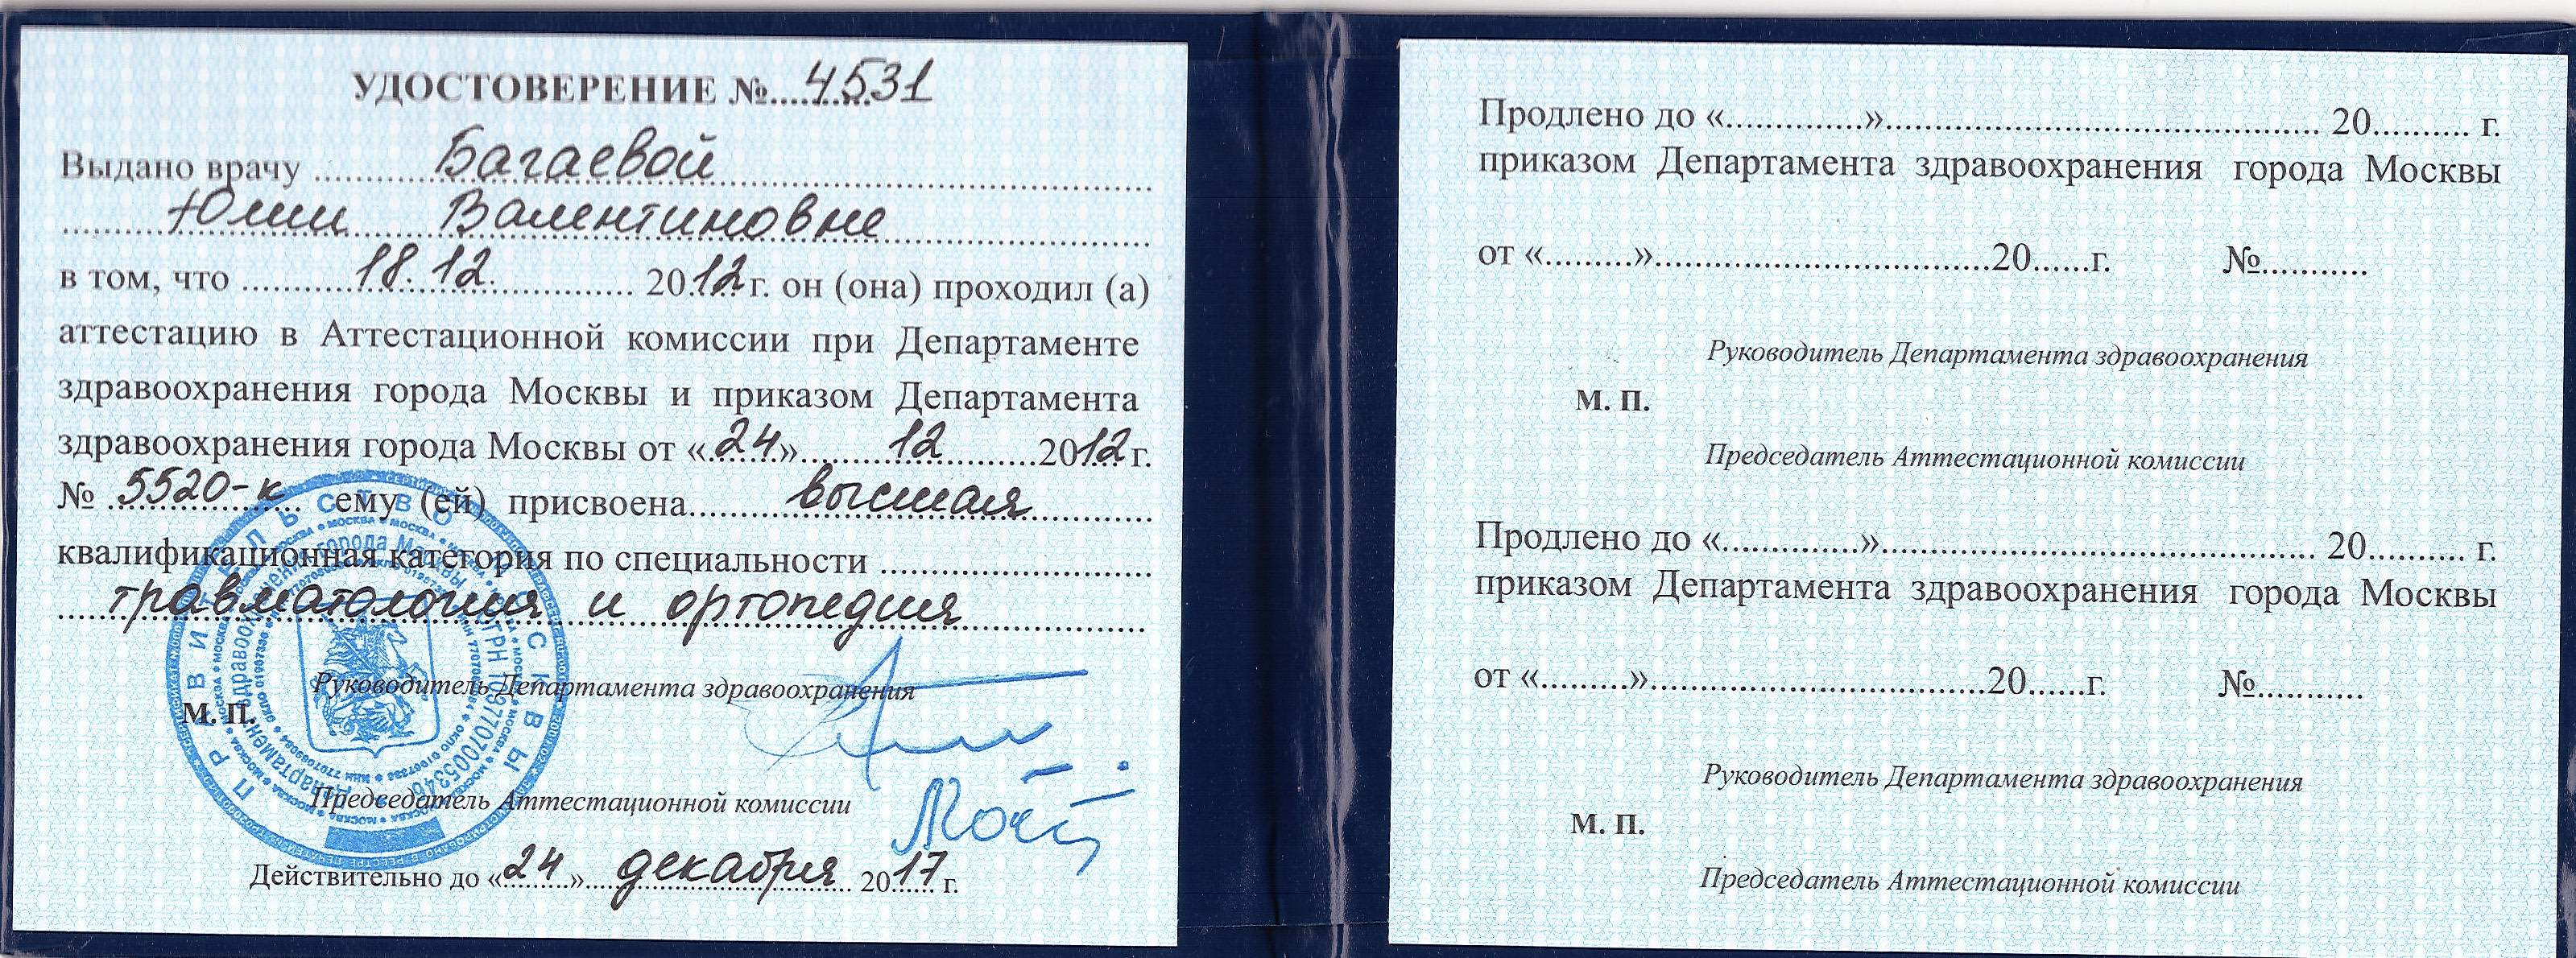 УДОСТОВЕРЕНИЕ №....4531
Выдано врачу Багаевой
Юлии Валентиновне
в том, что 18.12. 2012 г. он (она) проходил (а)
аттестацию в Аттестационной комиссии при Департаменте
здравоохранения города Москвы и приказом Департамента
здравоохранения города Москвы от «24» 12 2012 г.
№ 5520-к ему (ей) присвоена высшая
квалификационная категория по специальности
травматология и ортопедия
Руководитель Департамента здравоохранения
М. П.
Председатель Аттестационной комиссии
Действительно до «24» декабря 2017 г.
ПРАВИТЕЛЬСТВО МОСКВЫ
Департамент здравоохранения города Москвы
ОГРН 1037707005346
Продлено до «..............»............................................ 20.......... г.
приказом Департамента здравоохранения города Москвы
от «.........»..................................20......г. №...........
Руководитель Департамента здравоохранения
М. П.
Председатель Аттестационной комиссии
Продлено до «..............»............................................ 20.......... г.
приказом Департамента здравоохранения города Москвы
от «.........»..................................20......г. №...........
Руководитель Департамента здравоохранения
М. П.
Председатель Аттестационной комиссии